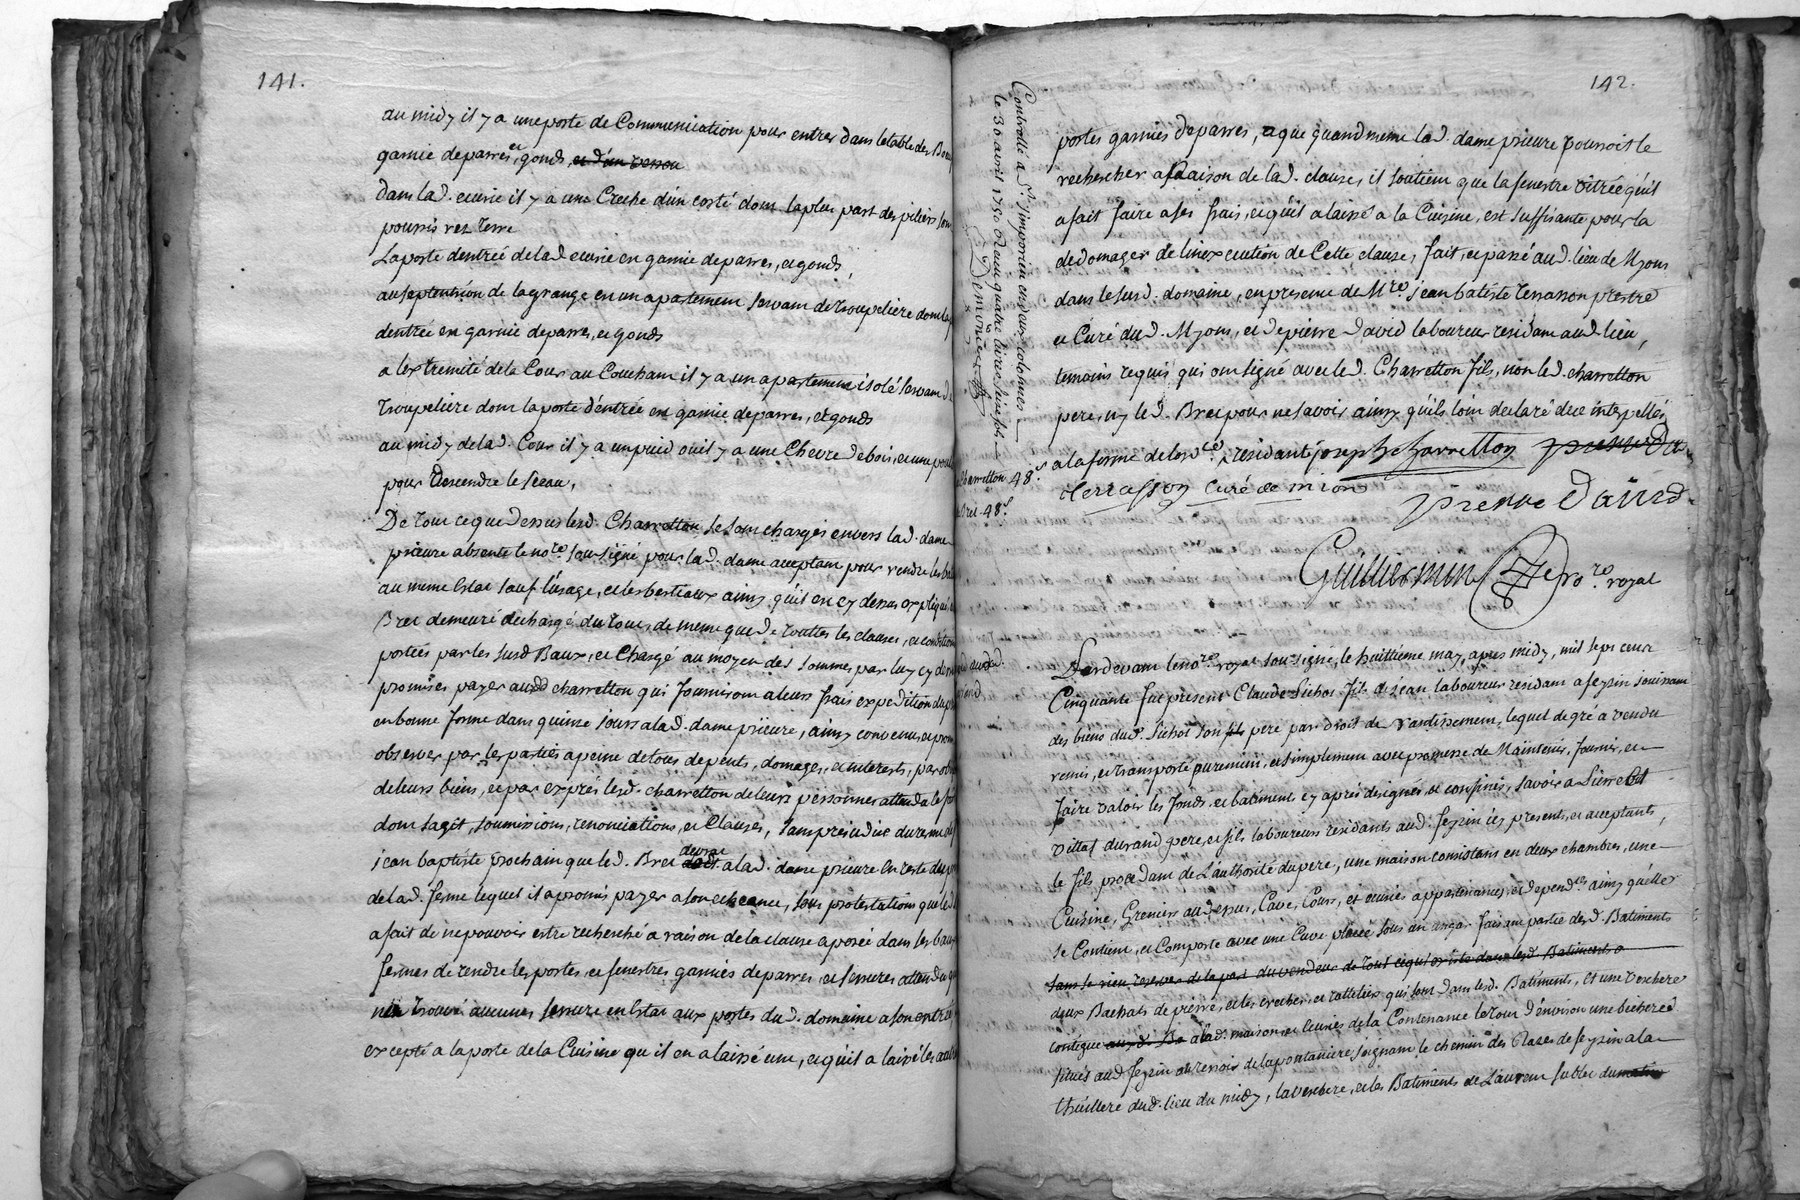 141.
au midy il y a une porte de Communication pour entrer dans letable des
garnie de parres et gonds, et d'un verrou
dans lad. ecurie il y a une Creche d'un costé dont la plus part des piliers sont
pourris rez terre
La porte dentrée de lad ecurie en garnie de parres, et gonds,
au septentrion de la grange en un apartement servant de troupeliere dont la
dentrée en garnie de parres, et gonds
a lextremité de la Cour au Couchant il y a un apartement isolé servant de
troupeliere dont la porte d'entrée en garnie de parres, et gonds
au midy de lad. Cour il y a un puid ou il y a une Chevre de bois, et une
pour descendre le seeau,
De tout ce que dessus lesd. Charretton se sont chargés envers lad. dame
prieure absente le nore. sousigné pour lad. dame acceptant pour rendre les
au meme Estat sauf l'usage, et les bestiaux ainsy qu'il en cy dessus expliqué
Bret demeuré dechargé du tout, de meme que de touttes les clauses, et conditions
portées par les susd Baux, et Chargé au moyen des sommes par luy cy dessus
promises payer auxd charretton qui fourniront a leurs frais expedition du
en bonne forme dans quinze jours a lad. dame prieure, ainsy convenu, et promis
observer par les parties a peine de tous depents, domages, et interests, par
de leurs biens, et par exprés lesd. charretton de leurs personnes attendu le
dont sagit, soumissions, renonciations, et Clauses, sans prejudice du terme de
jean baptiste prochain que led. Bret devra a lad. dame prieure En reste du
de lad. ferme lequel il a promis payer a son echeance, sous protestations que led
a fait de ne pouvoir estre recherché a raison de la clause aposée dans les baux
fermes de rendre les portes, et fenestres garnies de parres, et serrures attendu
n'a trouvé aucunes serrure en Estat aux portes dud. domaine a son entrée
excepté a la porte de la Cuisine qu'il en a laissé une, et qu'il a laissé les
142.
Controllé a St. Simphorien en deux colomnes
le 30 avril 1750 Receu quatre livres seize sols
Demonier
portes garnies de parres, a que quand meme lad. dame prieure pourroit le
rechercher a Raison de lad. clause, il soutient que la fenestre vitrée qu'il
a fait faire a ses frais, et qu'il a laissé a la Cuisine, est suffisante pour la
dedomager de linexecution de Cette clause, fait, et passé aud. lieu de Myons
dans le susd. domaine, en presence de Mre. jean batiste terrasson prestre
et Curé dud. Myons, et de pierre david laboureur residant aud lieu,
temoins requis qui ont signé avec led. Charretton fils, non led. charretton
pere, ny led. Bret pour ne savoir ainsy qu'ils l'ont declaré de ce interpellés
a la forme de lorce. residant joseph charretton
Charretton 48s
Bret 48s
terrasson Curé de mions
pierre david
Guilliermin nore. royal
Pardevant le nore. royal sousigné, le huittieme may, apres midy, mil sept cent
Cinquante fut present Claude Sichot fils de jean laboureur residant a feyzin jouissant
des biens dud. Sichot son pere par droit de, lequel de gré a vendu
remis, et transporté purement, et simplement avec promesse de Maintenir, fournir, et
faire valoir les fonds, et batiments cy aprés designés et confinés, savoir a Pierre et
Vittal durand pere, et fils laboureurs residants aud. feyzin icy presents, et acceptants,
le fils procedant de L'authorité du pere, une maison consistant en deux chambres, une
Cuisine, Greniers au dessus, Cave, Cour, et ecuries appartenances, et dependces ainsy qu'elle
se Contient, et Comporte avec une Cuve placée sous un angar faisant partie desd. Batiments
sans se rien reserver de la part du vendeur de tout ce qui existe dans lesd Batiments
deux Bachats de pierre, et les creches, et ratteliers qui sont dans lesd. Batiments, Et une verchere
contigue a lad. maison, et ecuries de la Contenance le tout d'environ une bicheree
situés aud feyzin joignant le chemin des Razes de feyzin a la
thuillere dud. lieu du midy, la verchere, et les Batiments de Laurent